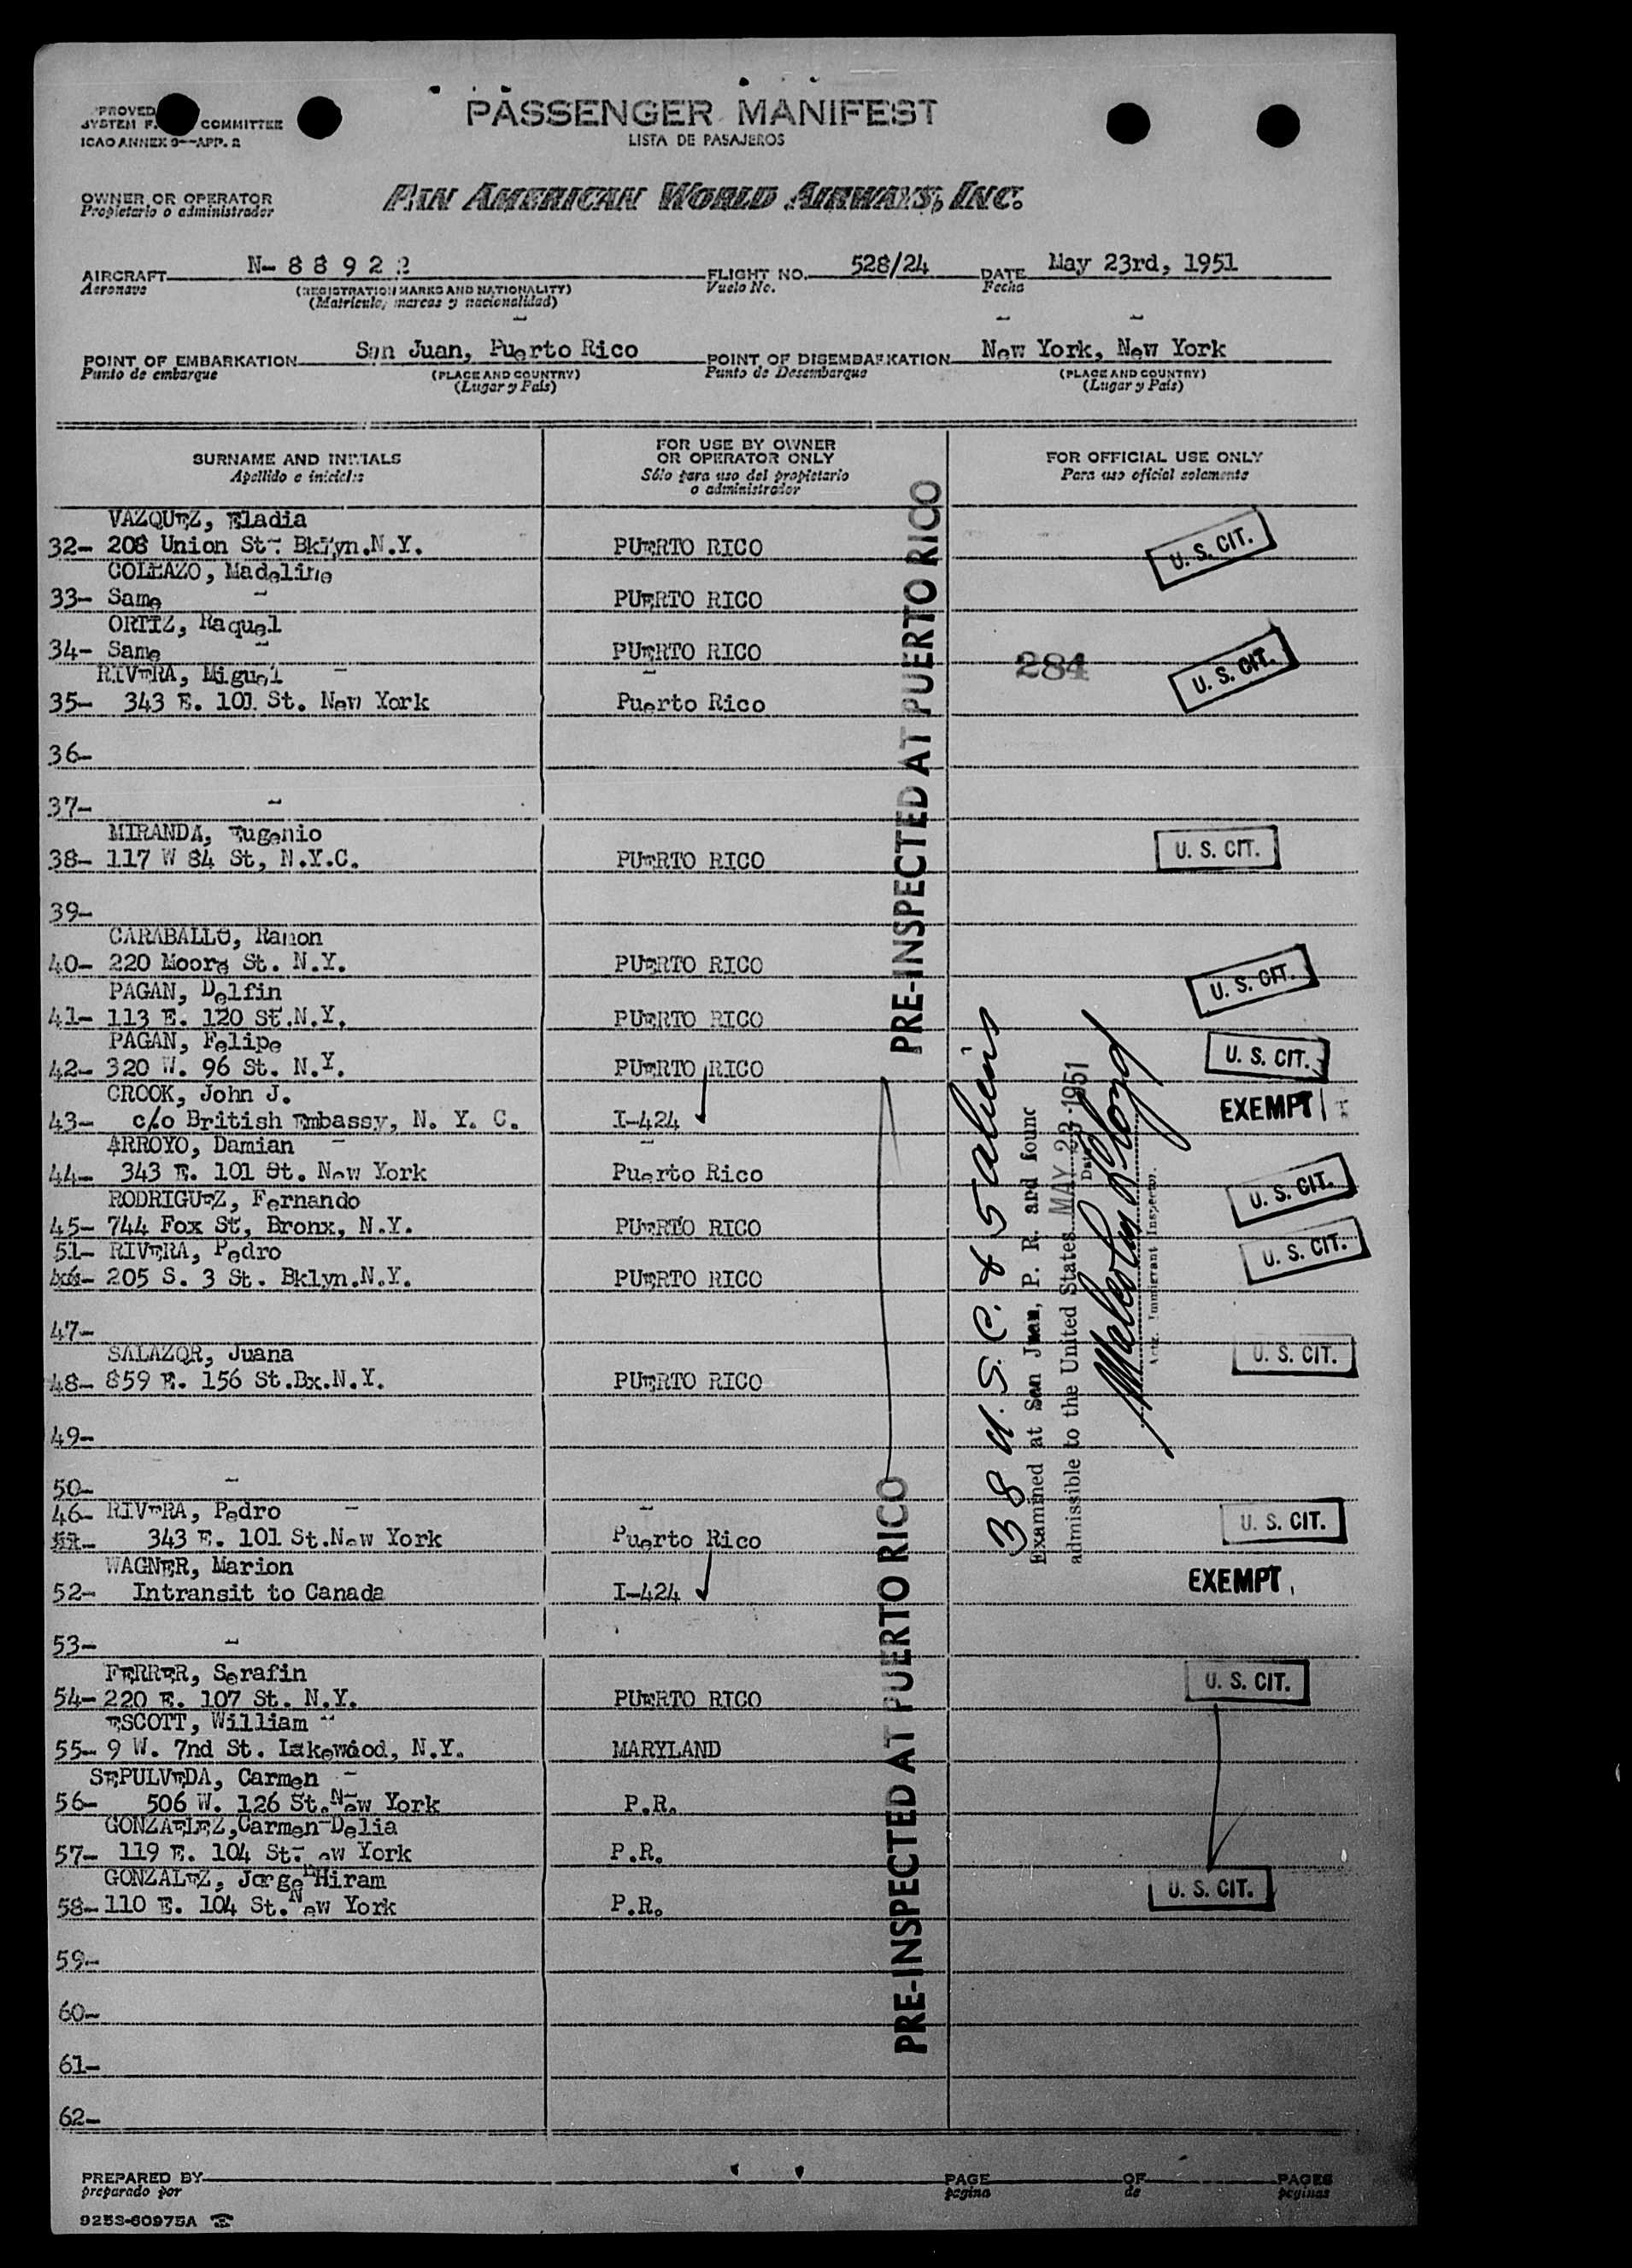 PROVED
SYSTEM F. COMMITTEE
ICAO ANNEX 9--APP. 2
PASSENGER MANIFEST
LISTA DE PASAJEROS
OWNER OR OPERATOR
Propietario o administrador
PAN AMERICAN WORLD AIRWAYS, INC.
AIRCRAFT N- 8 8 9 2 2 FLIGHT NO. 528/24 DATE May 23rd, 1951
Aeronave (REGISTRATION MARKS AND NATIONALITY) Vuelo No. Fecha
(Matricula, marcas y nacionalidad)
POINT OF EMBARKATION San Juan, Puerto Rico POINT OF DISEMBARKATION New York, New York
Punto de embarque (PLACE AND COUNTRY) Punto de Desembarque (PLACE AND COUNTRY)
(Lugar y País) (Lugar y País)
SURNAME AND INITIALS FOR USE BY OWNER OR OPERATOR ONLY FOR OFFICIAL USE ONLY
Apellido e iniciales Sólo para uso del propietario o administrador Para uso oficial solamente
VAZQUEZ, Eladia
32- 208 Union St- Bklyn.N.Y. PUERTO RICO U. S. CIT.
COLLAZO, Madeline
33- Same PUERTO RICO
ORTIZ, Raquel
34- Same PUERTO RICO 284 U. S. CIT.
RIVERA, Miguel
35- 343 E. 101 St. New York Puerto Rico
36-
37-
MIRANDA, Eugenio
38- 117 W 84 St, N.Y.C. PUERTO RICO U. S. CIT.
39-
CARABALLO, Ramon
40- 220 Moore St. N.Y. PUERTO RICO U. S. CIT.
PAGAN, Delfin
41- 113 E. 120 St.N.Y. PUERTO RICO
PAGAN, Felipe
42- 320 W. 96 St. N.Y. PUERTO RICO U. S. CIT.
CROOK, John J.
43- c/o British Embassy, N. Y. C. I-424 EXEMPT
ARROYO, Damian
44- 343 E. 101 St. New York Puerto Rico U. S. CIT.
RODRIGUEZ, Fernando
45- 744 Fox St, Bronx, N.Y. PUERTO RICO
51- RIVERA, Pedro U. S. CIT.
205 S. 3 St. Bklyn.N.Y. PUERTO RICO
47-
SALAZOR, Juana U. S. CIT.
48- 859 E. 156 St.Bx.N.Y. PUERTO RICO
49-
50-
46- RIVERA, Pedro U. S. CIT.
343 E. 101 St.New York Puerto Rico
WAGNER, Marion
52- Intransit to Canada I-424 EXEMPT
53-
FERRER, Serafin U. S. CIT.
54- 220 E. 107 St. N.Y. PUERTO RICO
ESCOTT, William
55- 9 W. 7nd St. Lakewood, N.Y. MARYLAND
SEPULVEDA, Carmen
56- 506 W. 126 St. New York P.R.
GONZAELEZ,Carmen-Delia
57- 119 E. 104 St- ew York P.R.
GONZALEZ, Jorge Hiram U. S. CIT.
58- 110 E. 104 St. New York P.R.
59-
60-
61-
62-
PRE-INSPECTED AT PUERTO RICO
PRE-INSPECTED AT PUERTO RICO
38 U. S. C. & 5 aliens
Examined at San Juan, P. R. and found
admissible to the United States MAY 23 1951
Date
Malcolm Lloyd
Actg. Immigrant Inspector.
PREPARED BY PAGE OF PAGES
preparado por pagina de paginas
9253-60975A